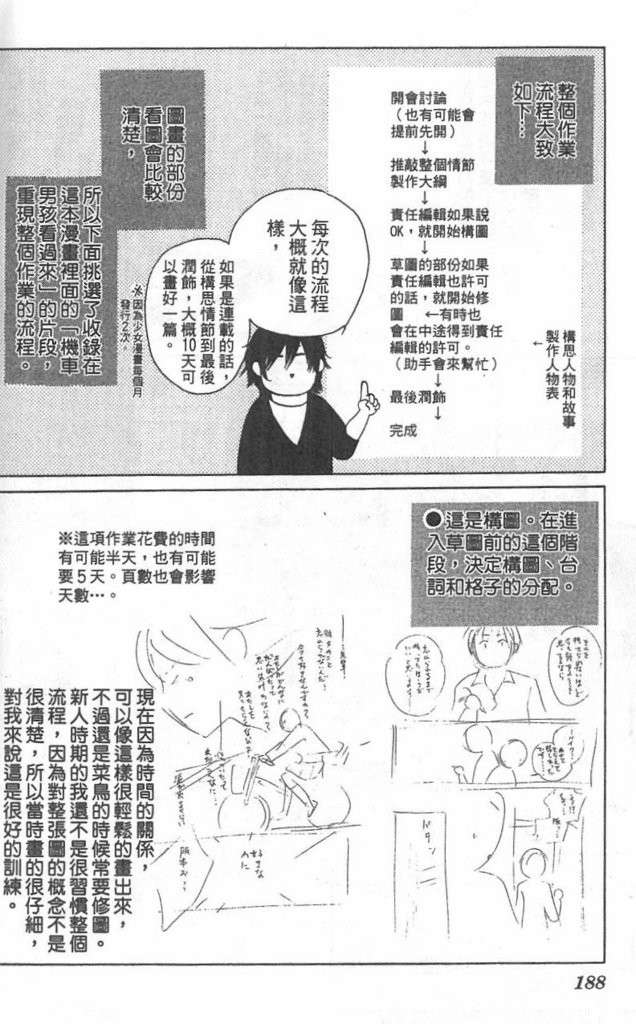 整個作業
流程大致
如下…
開會討論
（也有可能會
提前先開）
↓
推敲整個情節
製作大綱
↓
責任編輯如果說
OK，就開始構圖
↓
草圖的部份如果
責任編輯也許可
的話，就開始修
圖　←有時也
會在中途得到責任
編輯的許可。
（助手會來幫忙）
↓
最後潤飾
↓
完成
構思人物和故事
製作人物表
↓
每次的流程
大概就像這
樣，
如果是連載的話，
從構思情節到最後
潤飾，大概10天可
以畫好一篇。
※因為少女漫畫每個月
發行2次
圖畫的部份
看圖會比較
清楚，
所以下面挑選了收錄在
這本漫畫裡面的「機車
男孩看過來」的片段，
重現整個作業的流程。
●這是構圖。在進
入草圖前的這個階
段，決定構圖、台
詞和格子的分配。
※這項作業花費的時間
有可能半天，也有可能
要5天。頁數也會影響
天數…。
バタン
好きな
人に
現在因為時間的關係，
可以像這樣很輕鬆的畫出來，
不過還是菜鳥的時候常要修圖。
新人時期的我還不是很習慣整個
流程，因為對整張圖的概念不是
很清楚，所以當時畫的很仔細，
對我來說這是很好的訓練。
188